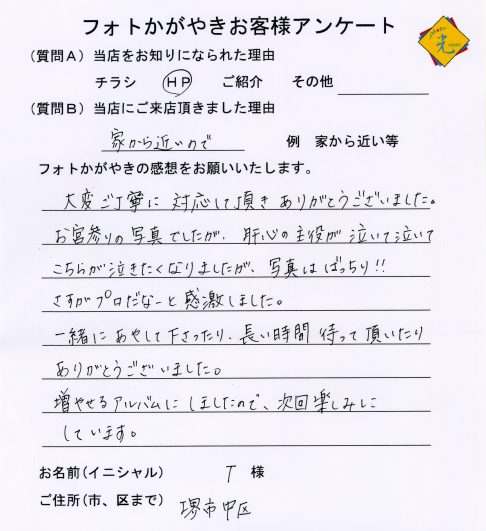 フォトかがやきお客様アンケート
光
(質問A) 当店をお知りになられた理由
チラシ HP ご紹介 その他
(質問B) 当店にご来店頂きました理由
家から近いので 例 家から近い等
フォトかがやきの感想をお願いいたします。
大変ご丁寧に対応して頂きありがとうございました。
お宮参りの写真でしたが、肝心の主役が泣いて泣いて
こちらが泣きたくなりましたが、写真はばっちり!!
さすがプロだなーと感激しました。
一緒にあやして下さったり、長い時間待って頂いたり
ありがとうございました。
増やせるアルバムにしましたので、次回楽しみに
しています。
お名前(イニシャル) T 様
ご住所(市、区まで) 堺市中区